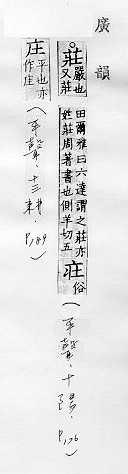 廣韻
莊嚴也又莊
田爾雅曰六達謂之莊亦
姓莊周著書也側羊切五
庄俗
(平聲.十陽.P.176)
庄平也亦作庄
(平聲.十三耕.P.189)